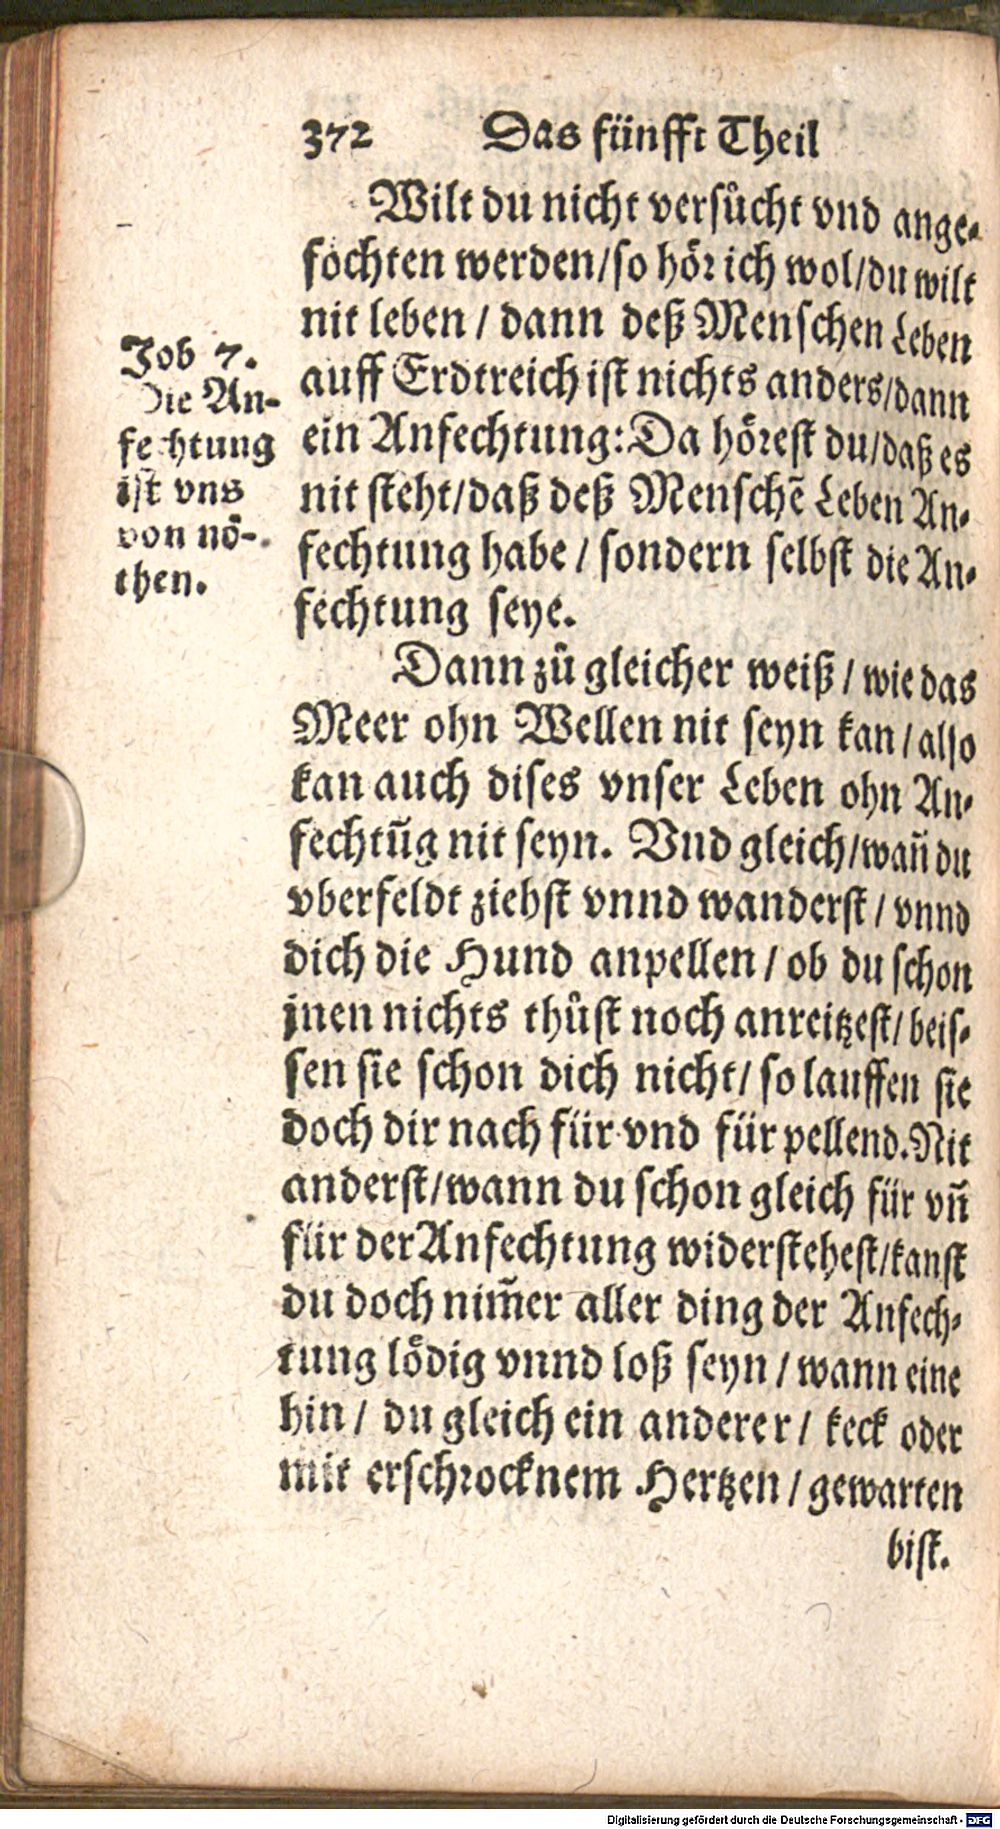 372 Das fünfft Theil
Wilt du nicht versůcht vnd ange-
fochten werden/so hör ich wol/du wilt
nit leben / dann deß Menschen Leben
auff Erdtreich ist nichts anders/dann
ein Anfechtung: Da hörest du/daß es
nit steht/daß deß Menschẽ Leben An-
fechtung habe / sondern selbst die An-
fechtung seye.
Job 7.
Die An-
fechtung
ist vns
von nö-
then.
Dann zů gleicher weiß / wie das
Meer ohn Wellen nit seyn kan / also
kan auch dises vnser Leben ohn An-
fechtũg nit seyn. Vnd gleich/wañ du
vberfeldt ziehst vnnd wanderst / vnnd
dich die Hund anpellen / ob du schon
jnen nichts thůst noch anreitzest/ beis-
sen sie schon dich nicht/ so lauffen sie
doch dir nach für vnd für pellend. Nit
anderst/wann du schon gleich für vñ
für der Anfechtung widerstehest/kanst
du doch nim̃er aller ding der Anfech-
tung lödig vnnd loß seyn / wann eine
hin / du gleich ein anderer / keck oder
mit erschrocknem Hertzen / gewarten
bist.
Digitalisierung gefördert durch die Deutsche Forschungsgemeinschaft - DFG